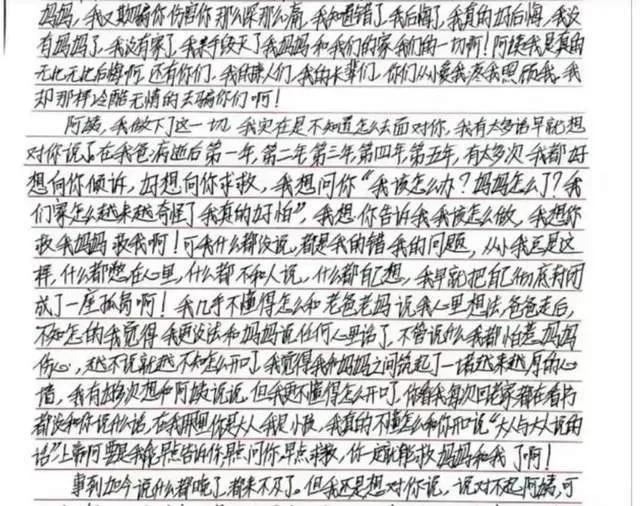 妈妈，我又欺骗你伤害你那么深那么痛，我知道错了我后悔了，我真的好后悔，我没
有妈妈了，我没有家了，我亲手毁灭了我妈妈和我们的家我们的一切啊！阿姨我是真的
无比无比后悔啊，还有你们，我的亲人们，我的长辈们，你们从小爱我疼我照顾我，我
却那样冷酷无情的去骗你们啊！
阿姨，我做下了这一切，我实在是不知道怎么去面对你，我有太多话早就想
对你说了。在我爸病逝后第一年，第二年，第三年，第四年，第五年，有太多次我都好
想向你倾诉，好想向你求救，我想问你“我该怎么办？妈妈怎么了？我
们家怎么越来越奇怪了我真的好怕”，我想你告诉我我该怎么做，我想你
救我妈妈救我啊！可我什么都没说，都是我的错我的问题，从小我总是这
样，什么都憋在心里，什么都不和人说，什么都自己想，我早就把自己彻底封闭
成了一座孤岛啊！我几乎不懂得怎么和老爸老妈说我心里想法，爸爸走后，
不知怎的我觉得我更没法和妈妈说任何心里话了，不管说什么我都怕惹妈妈
伤心，越不说就越不知怎么开口了，我觉得我和妈妈之间筑起了一堵越来越厚的心
墙，我有好多次想和阿姨说说，但我更不懂得怎么开口了，你看我每次回老家都在看书
都没和你说什么话，在我那里你是大人我是小孩，我真的不懂怎么和你开口说“大人与大人说的
话”上帝阿要是我能早点告诉你，早点问你，早点求救，你一定就能救妈妈和我了啊！
事到如今说什么都晚了，都来不及了。但我还是想对你说，说对不起阿姨，可